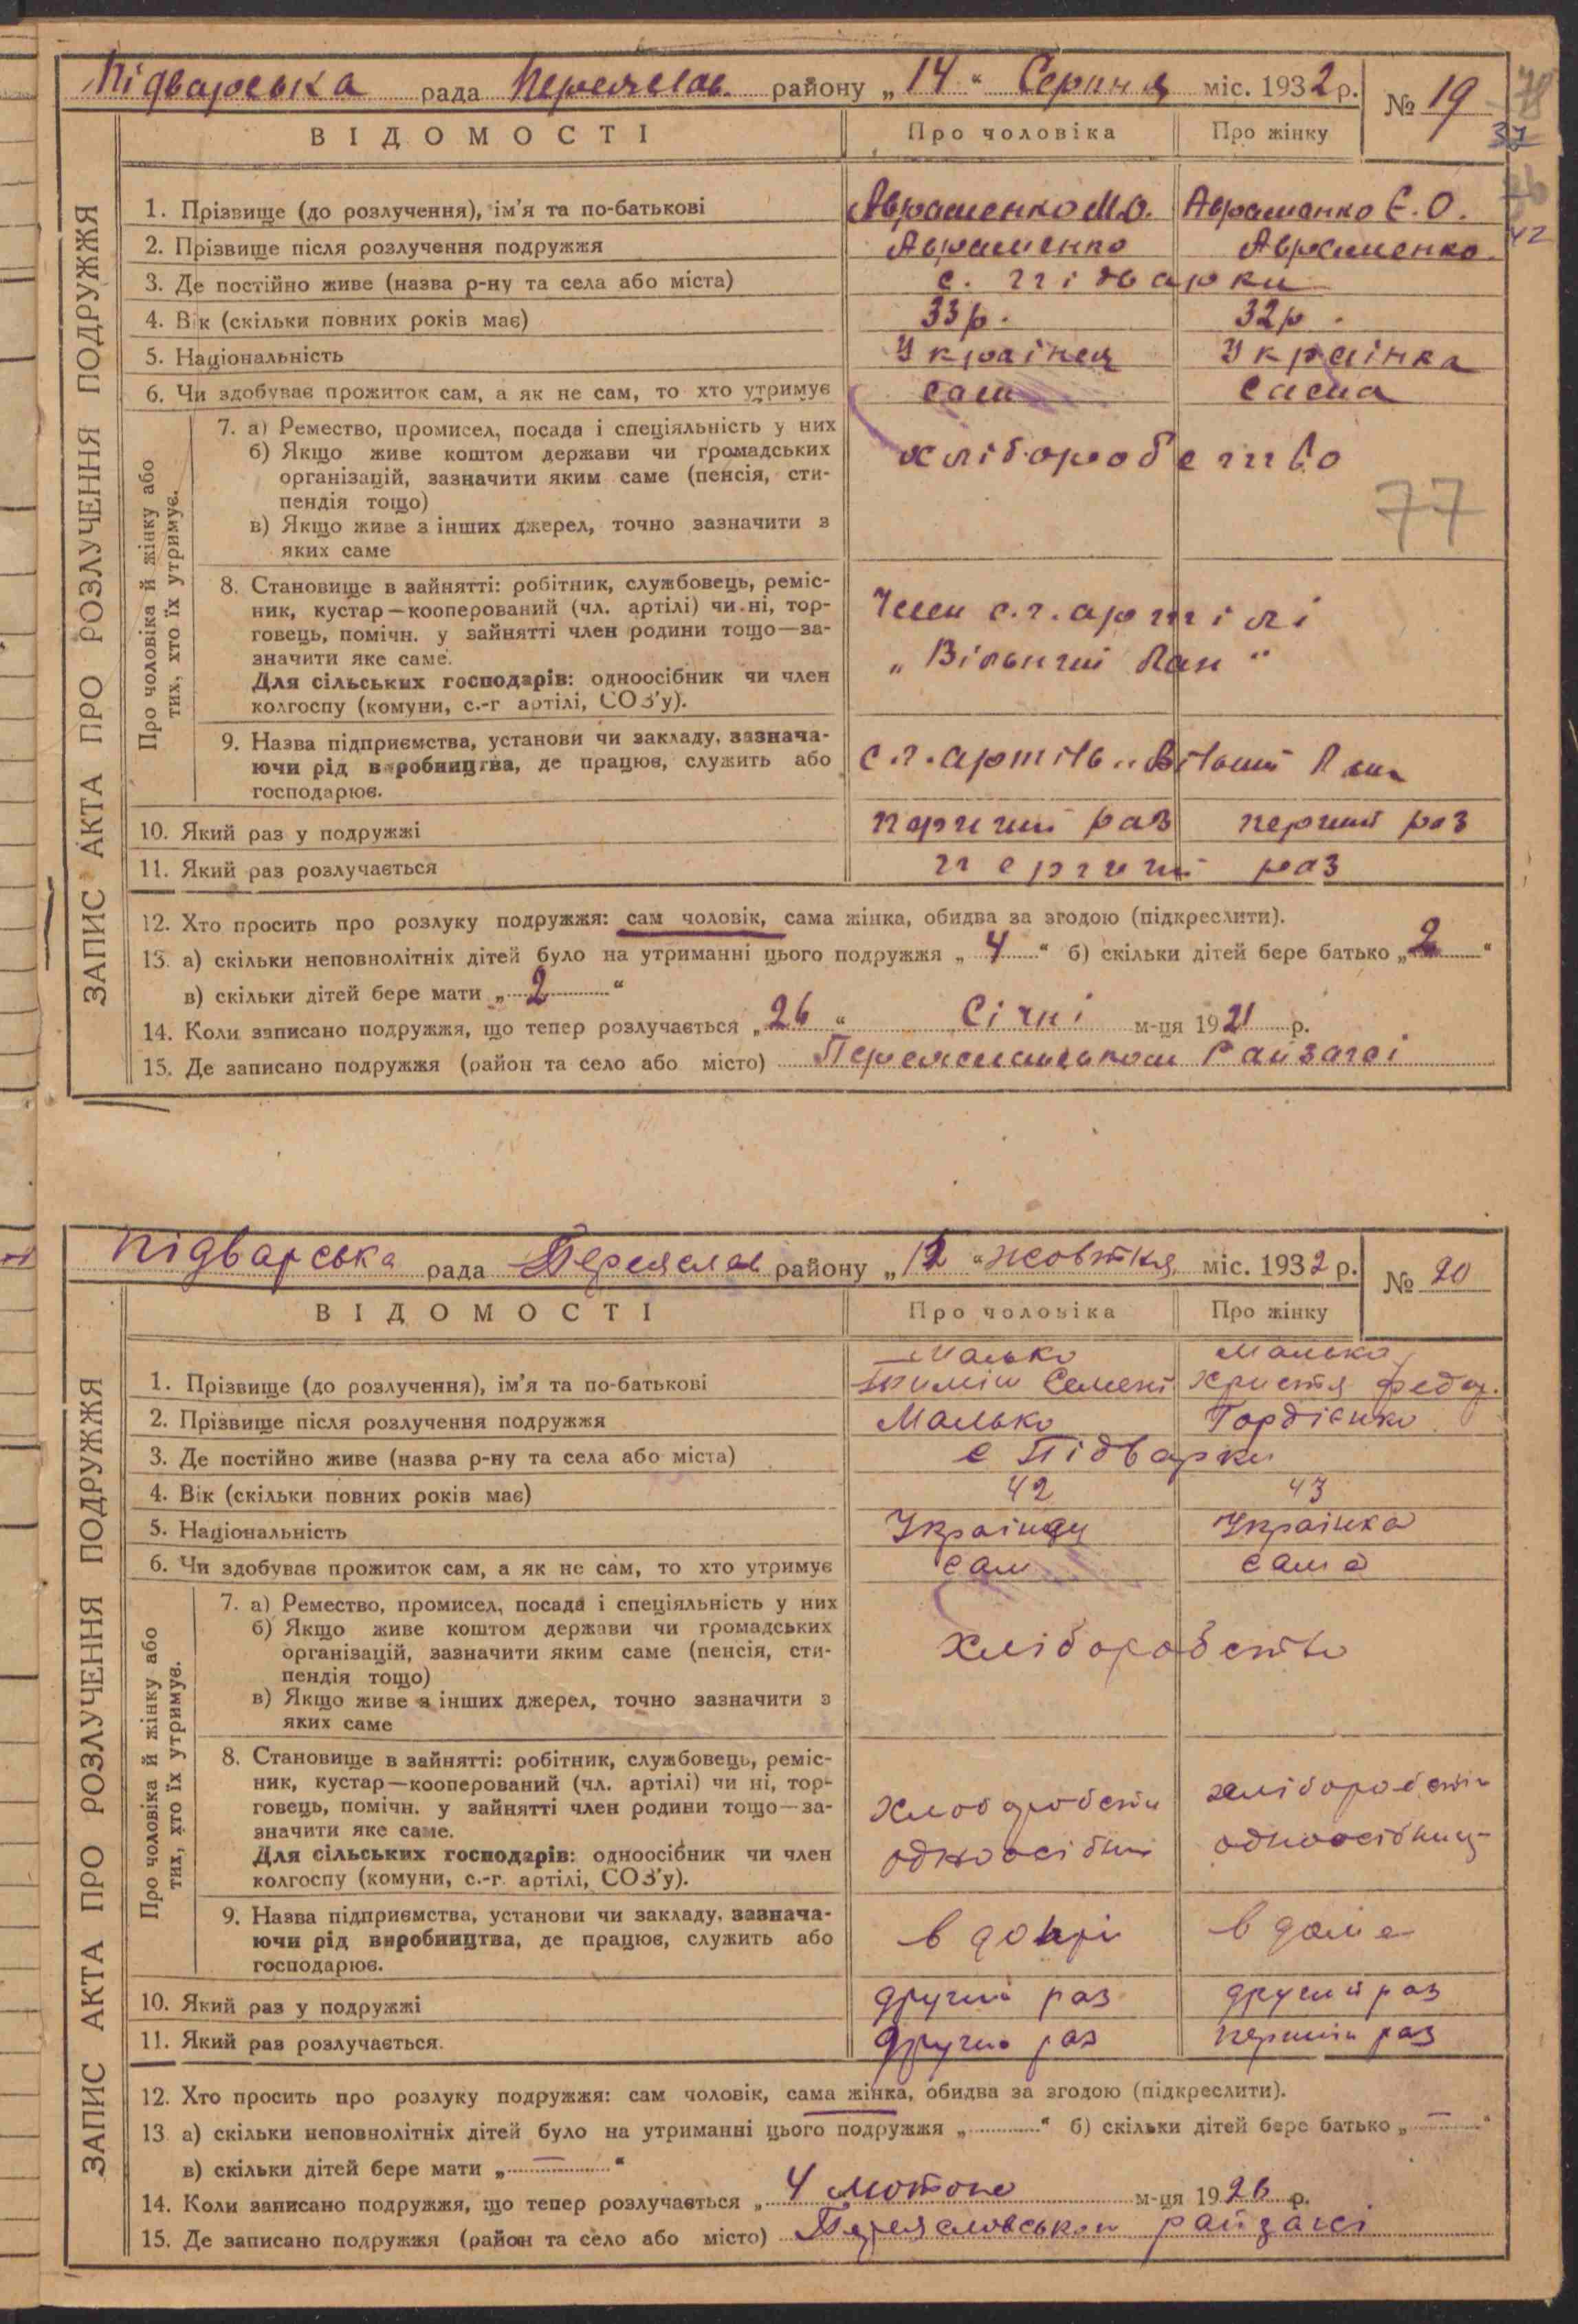 Підварська рада Переяслав. району „14“ Серпня міс. 1932 р. № 19
78
37
ВІДОМОСТІ Про чоловіка Про жінку
ЗАПИС АКТА ПРО РОЗЛУЧЕННЯ ПОДРУЖЖЯ
1. Прізвище (до розлучення), ім'я та по-батькові Авраменко М.О. Авраменко Є.О.
42
2. Прізвище після розлучення подружжя Авраменко Авраменко
3. Де постійно живе (назва р-ну та села або міста) с. Підварки
4. Вік (скільки повних років має) 33 р. 32 р.
5. Національність Українец Українка
6. Чи здобуває прожиток сам, а як не сам, то хто утримує сам сама
Про чоловіка й жінку або
тих, хто їх утримує.
7. а) Ремество, промисел, посада і спеціяльність у них
б) Якщо живе коштом держави чи громадських хліборобство
організацій, зазначити яким саме (пенсія, сти-
пендія тощо) 77
в) Якщо живе з інших джерел, точно зазначити з
яких саме
8. Становище в зайнятті: робітник, службовець, реміс-
ник, кустар—кооперований (чл. артілі) чи ні, тор- Член с.г. артілі
говець, помічн. у зайнятті член родини тощо—за-
значити яке саме. „Вільний Лан“
Для сільських господарів: одноосібник чи член
колгоспу (комуни, с.-г артілі, СОЗ'у).
9. Назва підприємства, установи чи закладу, зазнача-
ючи рід виробництва, де працює, служить або с.г. артіль „Вільний Лан
господарює.
10. Який раз у подружжі перший раз перший раз
11. Який раз розлучається перший раз
12. Хто просить про розлуку подружжя: сам чоловік, сама жінка, обидва за згодою (підкреслити).
13. а) скільки неповнолітніх дітей було на утриманні цього подружжя „4“ б) скільки дітей бере батько „2“
в) скільки дітей бере мати „2“
14. Коли записано подружжя, що тепер розлучається „26“ Січні м-ця 1921 р.
15. Де записано подружжя (район та село або місто) Райзагсі
Підварська рада Переяслав району „12“ жовтня міс. 1932 р. № 20
ВІДОМОСТІ Про чоловіка Про жінку
ЗАПИС АКТА ПРО РОЗЛУЧЕННЯ ПОДРУЖЖЯ
Малько Малько
1. Прізвище (до розлучення), ім'я та по-батькові Семені Христя Федор.
2. Прізвище після розлучення подружжя Малько Гордієнко
3. Де постійно живе (назва р-ну та села або міста) с Підварки
4. Вік (скільки повних років має) 42 43
5. Національність Українец Українка
6. Чи здобуває прожиток сам, а як не сам, то хто утримує сам сама
Про чоловіка й жінку або
тих, хто їх утримує.
7. а) Ремество, промисел, посада і спеціяльність у них
б) Якщо живе коштом держави чи громадських
організацій, зазначити яким саме (пенсія, сти- хліборобство
пендія тощо)
в) Якщо живе з інших джерел, точно зазначити з
яких саме
8. Становище в зайнятті: робітник, службовець, реміс-
ник, кустар—кооперований (чл. артілі) чи ні, тор-
говець, помічн. у зайнятті член родини тощо—за-
значити яке саме.
Для сільських господарів: одноосібник чи член
колгоспу (комуни, с.-г. артілі, СОЗ'у).
9. Назва підприємства, установи чи закладу, зазнача-
ючи рід виробництва, де працює, служить або в в дома
господарює.
10. Який раз у подружжі другий раз другий раз
11. Який раз розлучається. другий раз перший раз
12. Хто просить про розлуку подружжя: сам чоловік, сама жінка, обидва за згодою (підкреслити).
13. а) скільки неповнолітніх дітей було на утриманні цього подружжя „ “ б) скільки дітей бере батько „—“
в) скільки дітей бере мати „—“
14. Коли записано подружжя, що тепер розлучається „4 Лютого м-ця 1926 р.
15. Де записано подружжя (район та село або місто) Переяславськом райзагсі